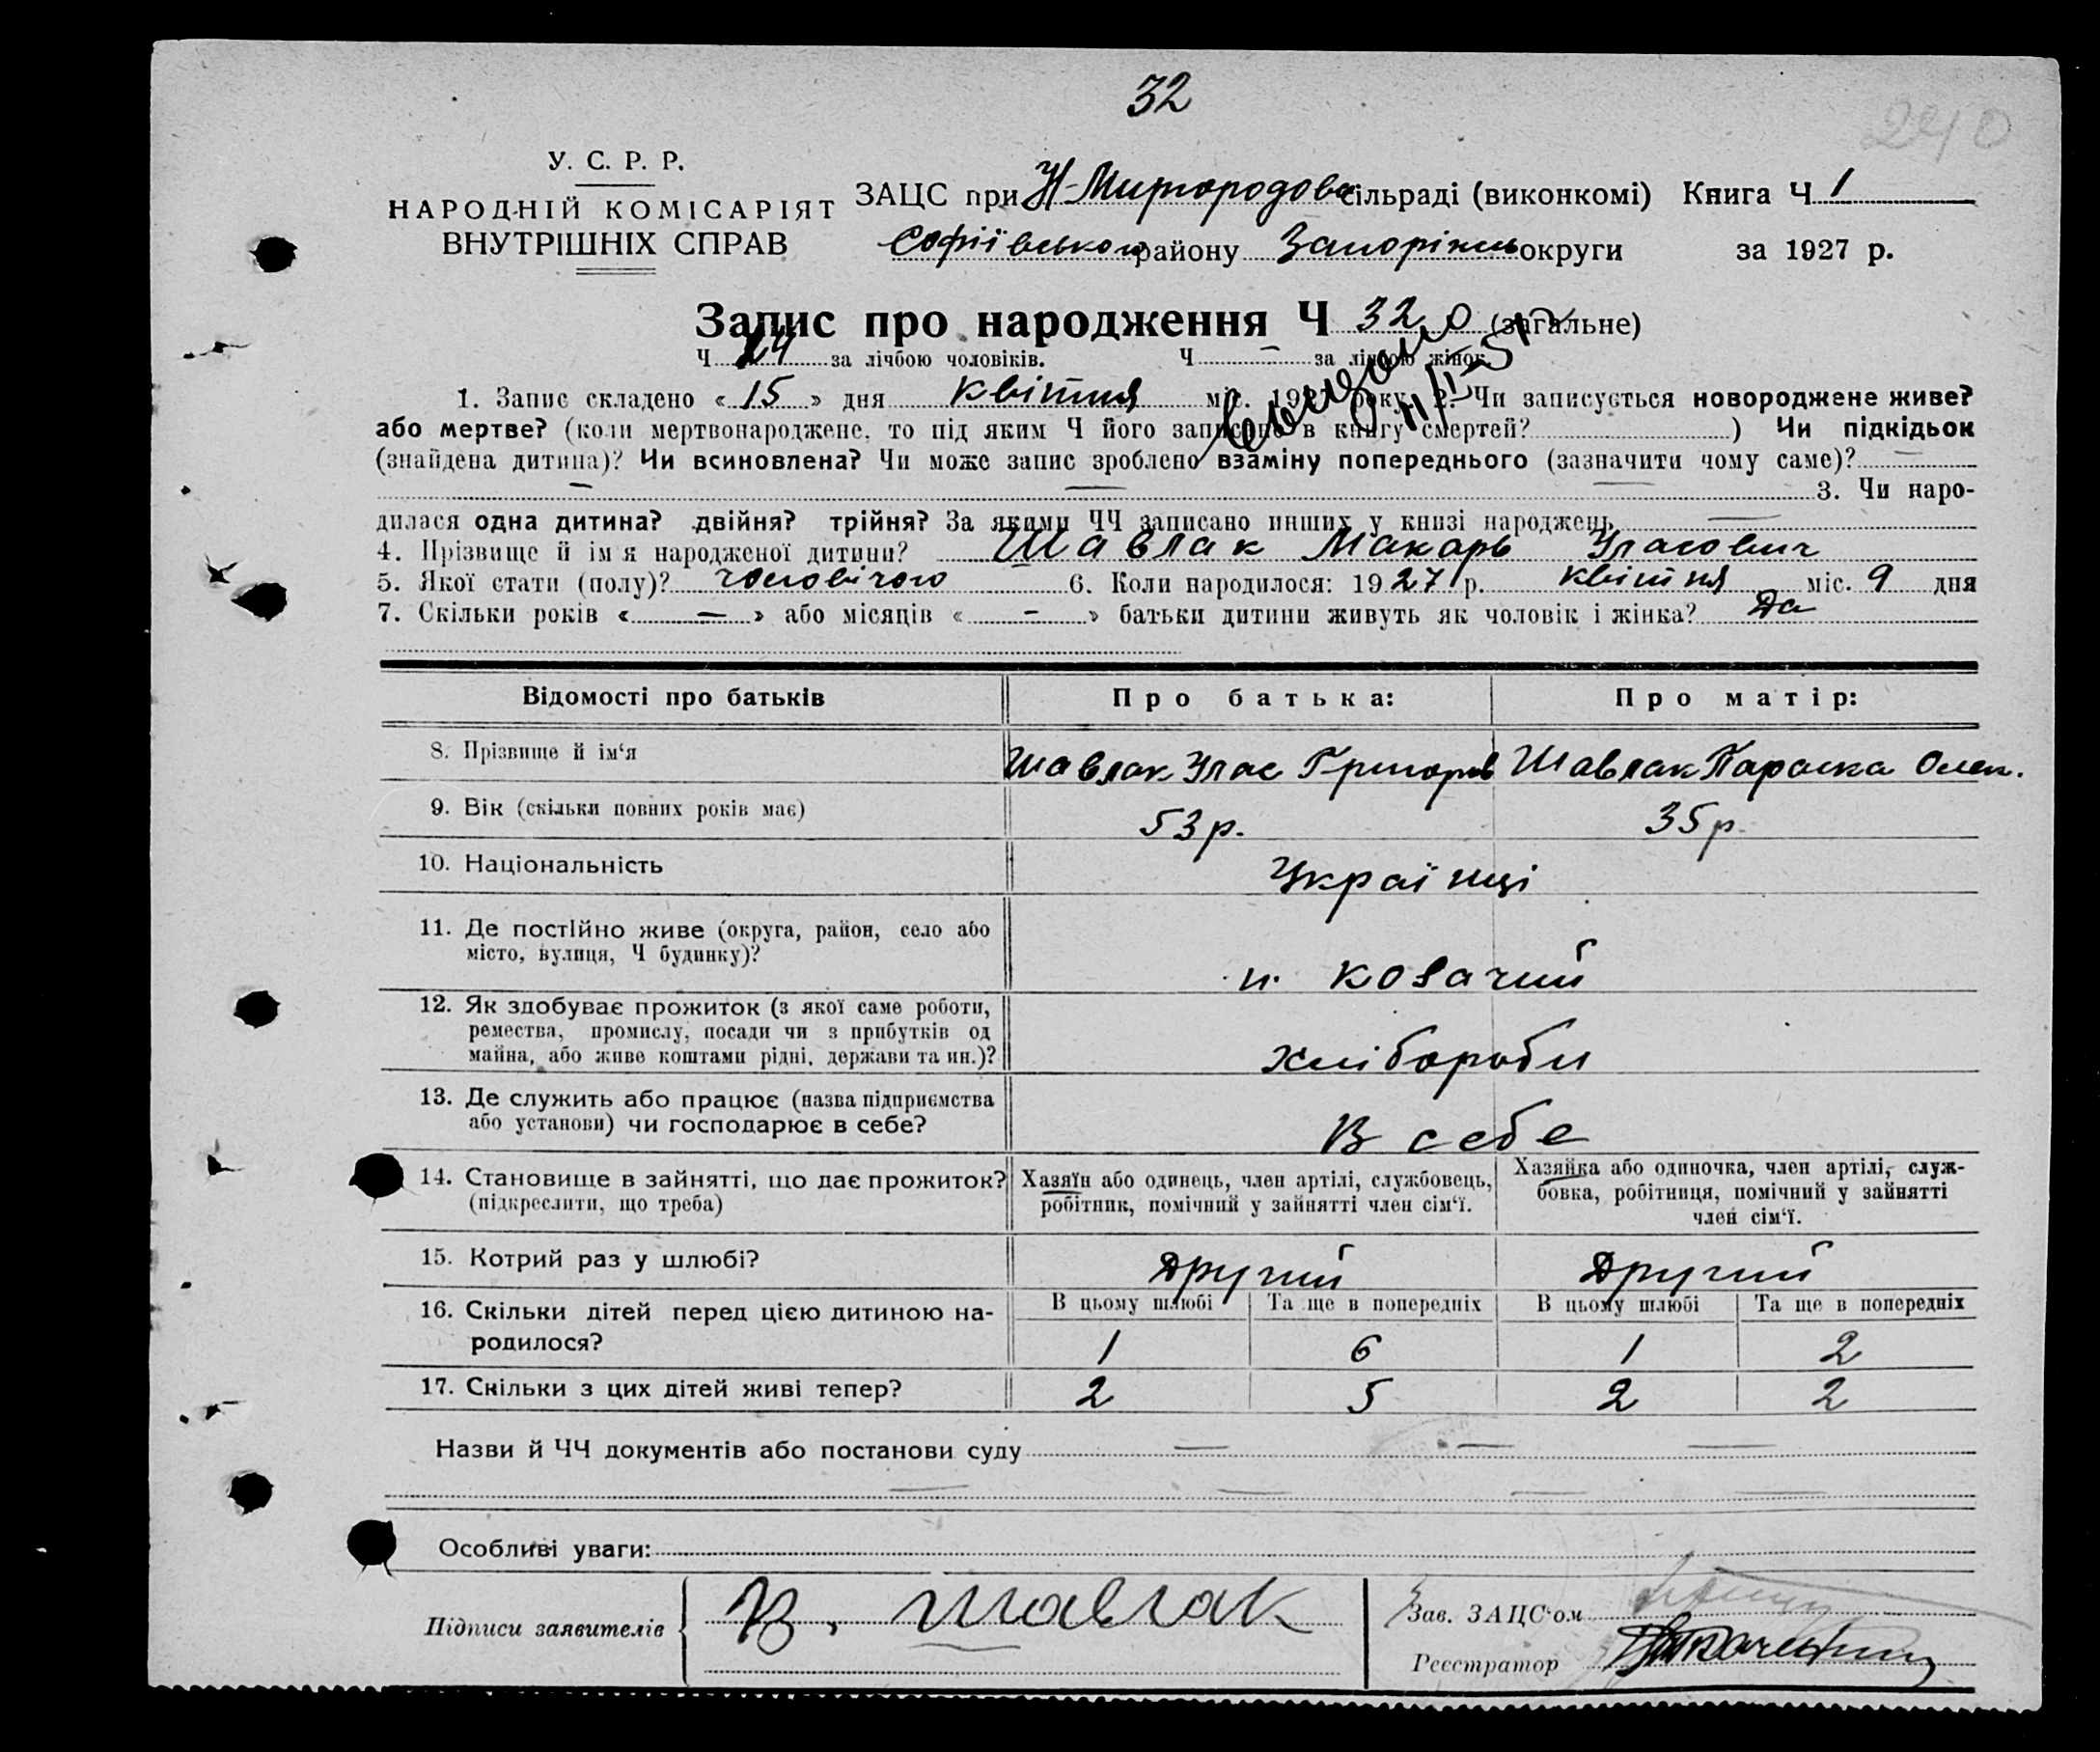 32
240
У. С. Р. Р.
НАРОДНІЙ КОМІСАРІЯТ
ВНУТРІШНІХ СПРАВ
ЗАЦС при Н-Миргородовс сільраді (виконкомі) Книга Ч 1
Софіївського району Запорізьк округи за 1927 р.
Запис про народження Ч 32 (загальне)
Ч 24 за лічбою чоловіків. Ч – за лічбою жінок
1. Запис складено «15» дня квітня міс. 1927 року. 2. Чи записується новороджене живе?
або мертве? (коли мертвонароджене, то під яким Ч його записано в книгу смертей? ) Чи підкідьок
(знайдена дитина)? Чи всиновлена? Чи може запис зроблено взаміну попереднього (зазначити чому саме)? —
— — — 3. Чи наро-
дилася одна дитина? двійня? трійня? За якими ЧЧ записано инших у книзі народжень —
4. Прізвище й ім'я народженої дитини? Шавлак Макарь Уласович
5. Якої стати (полу)? чоловічого 6. Коли народилося: 1927 р. квітня міс. 9 дня
7. Скільки років « — » або місяців « - » батьки дитини живуть як чоловік і жінка? Да
Відомості про батьків Про батька: Про матір:
8. Прізвище й ім'я Шавлак Улас Григоров Шавлак Параска Олек.
9. Вік (скільки повних років має) 53 р. 35 р.
10. Національність Українці
11. Де постійно живе (округа, район, село або
місто, вулиця, Ч будинку)? п. козачий
12. Як здобуває прожиток (з якої саме роботи,
ремества, промислу, посади чи з прибутків од
майна, або живе коштами рідні, держави та ин.)? хлібороби
13. Де служить або працює (назва підприємства
або установи) чи господарює в себе? В себе
14. Становище в зайнятті, що дає прожиток?
(підкреслити, що треба)
Хазяїн або одинець, член артілі, службовець,
робітник, помічний у зайнятті член сім'ї.
Хазяйка або одиночка, член артілі, служ-
бовка, робітниця, помічний у зайнятті
член сім'ї.
15. Котрий раз у шлюбі? Другий Другий
16. Скільки дітей перед цією дитиною на-
родилося?
В цьому шлюбі Та ще в попередніх В цьому шлюбі Та ще в попередніх
1 6 1 2
17. Скільки з цих дітей живі тепер? 2 5 2 2
Назви й ЧЧ документів або постанови суду — — —
— — — —
Особливі уваги:
Підписи заявителів В. Шавлак
Зав. ЗАЦС'ом
Реєстратор